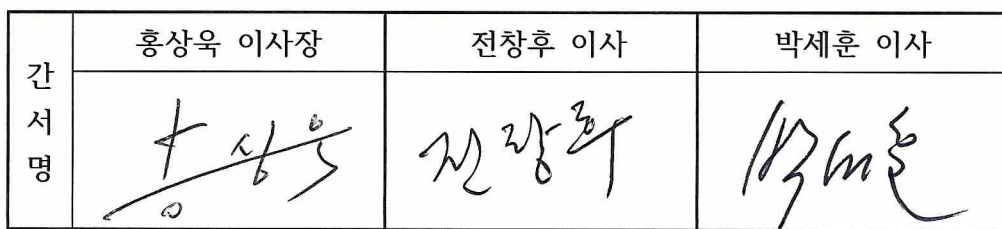 간서명
홍상욱 이사장 전창후 이사 박세훈 이사
홍상욱 전창후